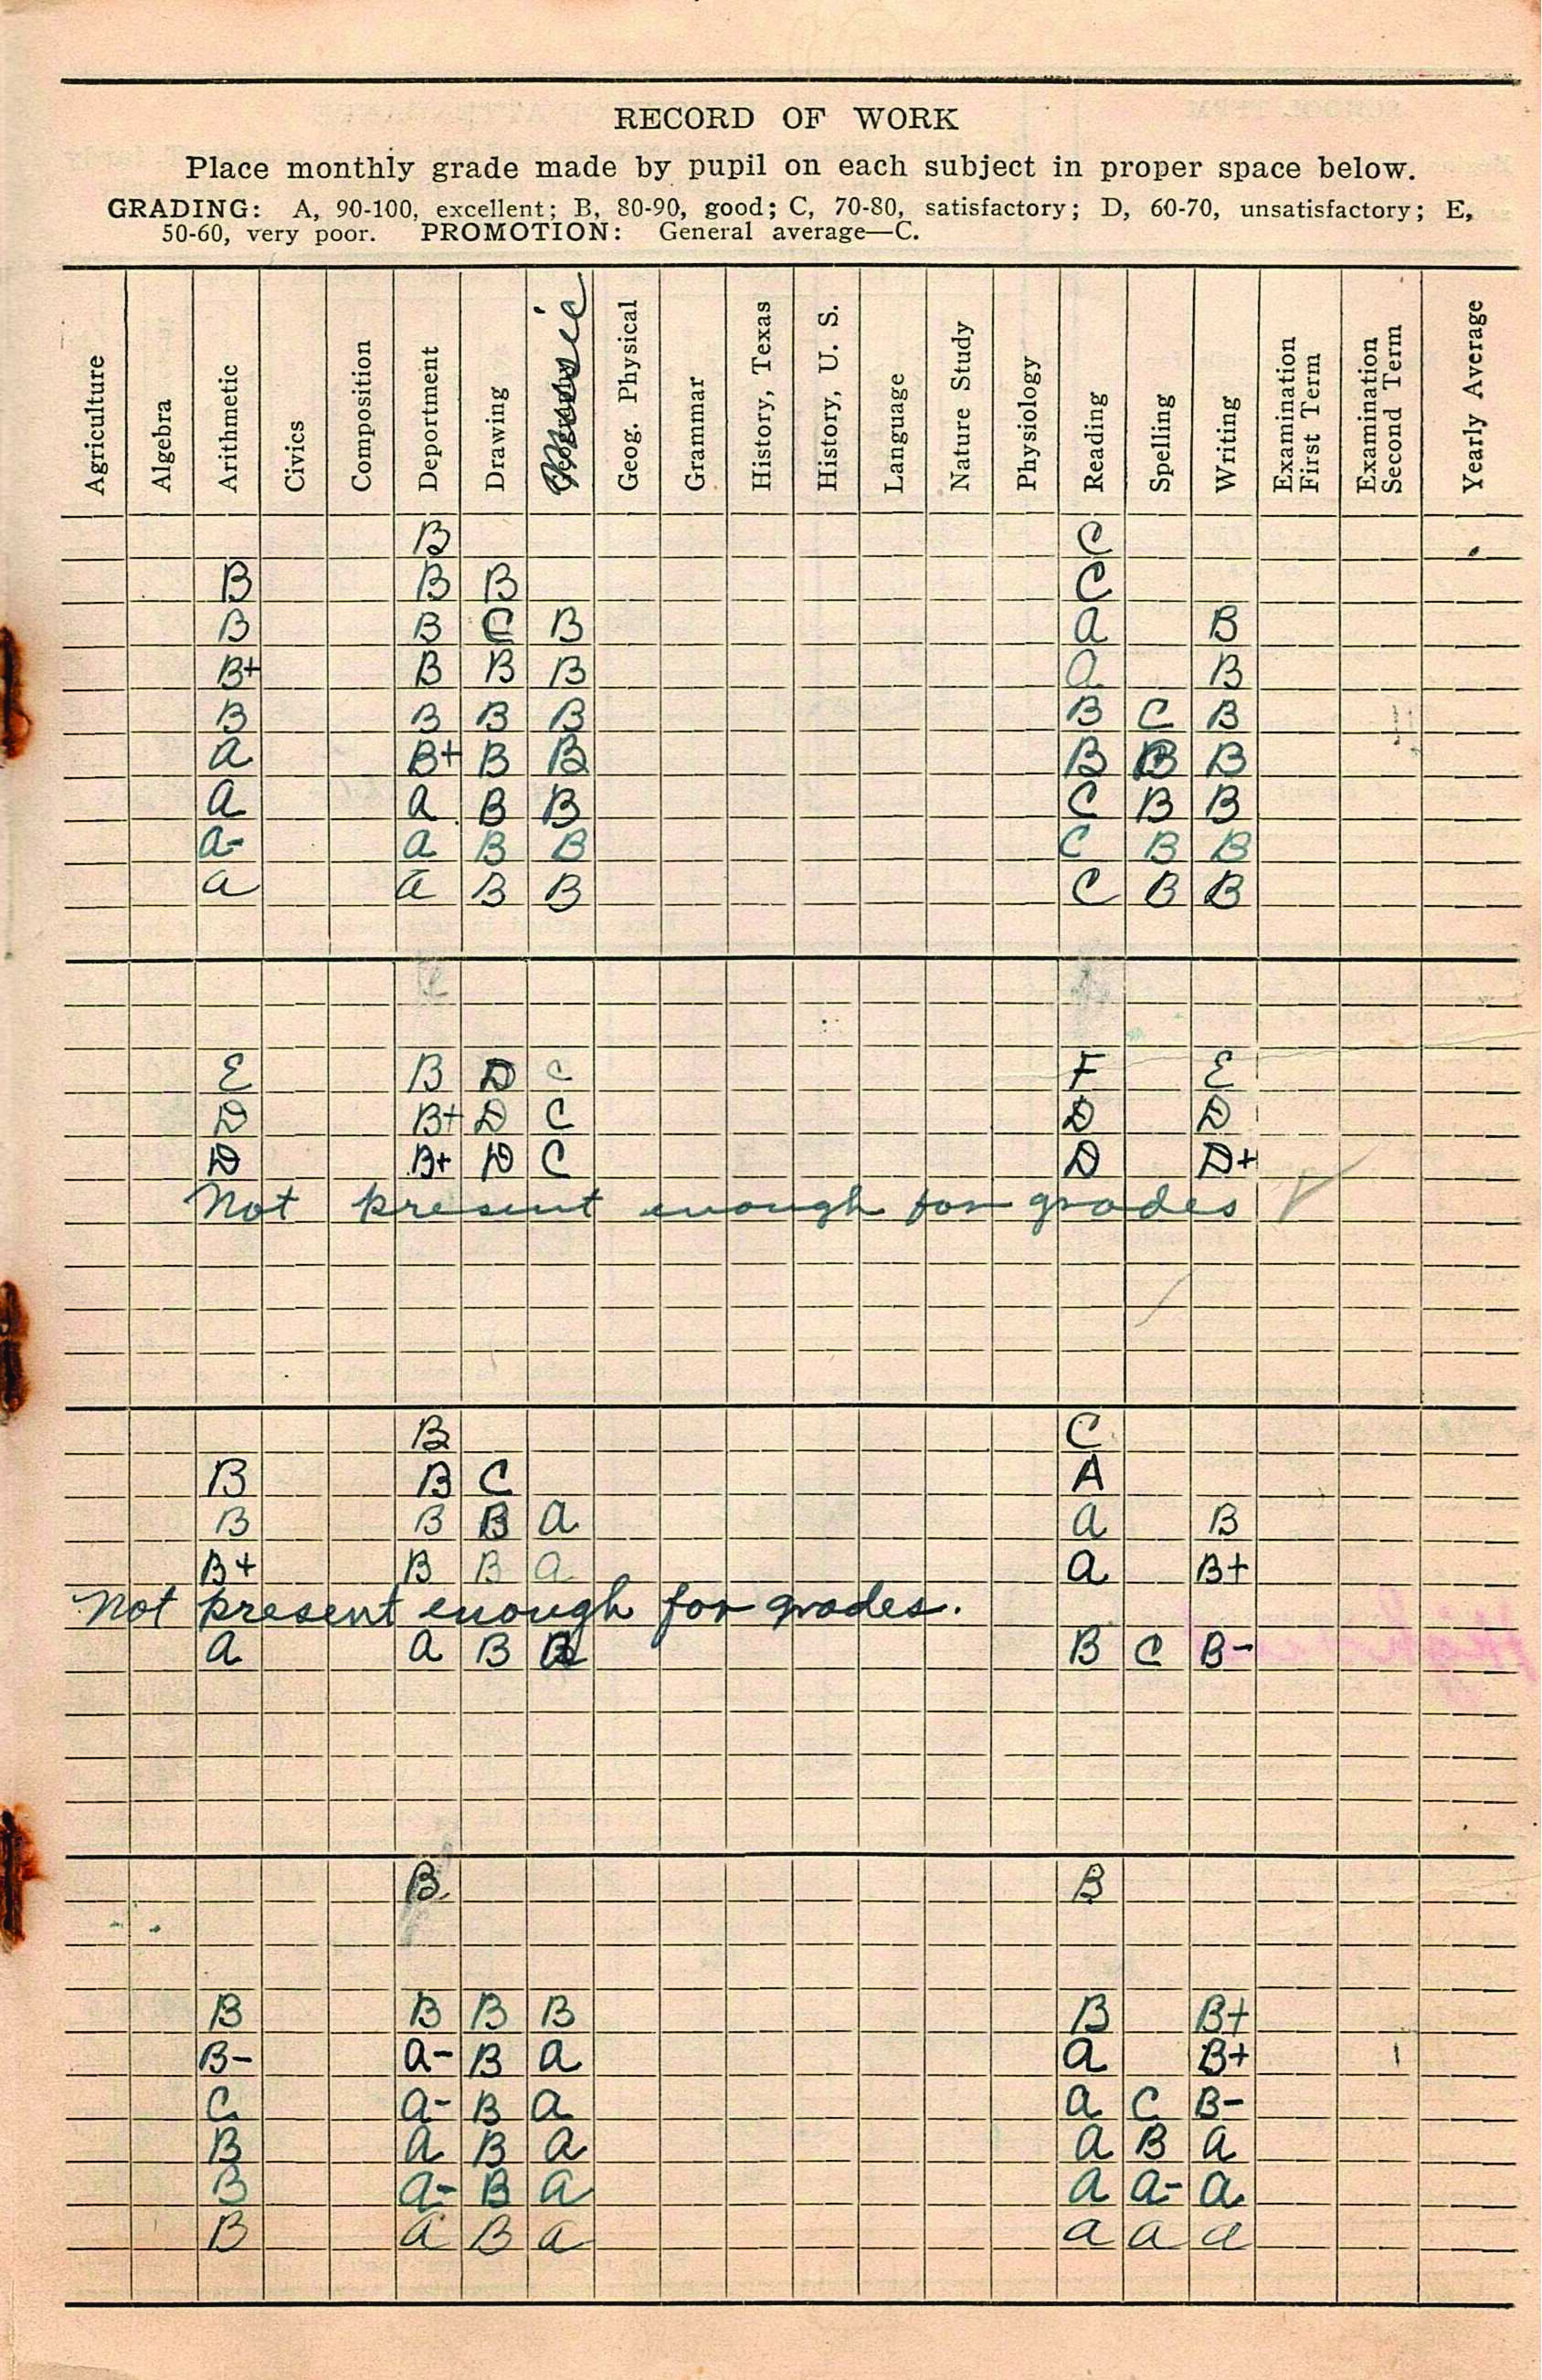 RECORD OF WORK
Place monthly grade made by pupil on each subject in proper space below.
GRADING: A, 90-100, excellent; B, 80-90, good; C, 70-80, satisfactory; D, 60-70, unsatisfactory; E,
50-60, very poor. PROMOTION: General average—C.
Agriculture
Algebra
Arithmetic
Civics
Composition
Deportment
Drawing
Music
Geog. Physical
Grammar
History, Texas
History, U. S.
Language
Nature Study
Physiology
Reading
Spelling
Writing
Examination
First Term
Examination
Second Term
Yearly Average
B C
B B B C
B B C B A B
B+ B B B A B
B B B B B C B
A B+ B B B B B
A A B B C B B
A- A B B C B B
A A B B C B B
E B D C F E
D B+ D C D D
D B+ D C D D+
Not present enough for grades
B C
B B C A
B B B A A B
B+ B B A A B+
Not present enough for grades.
A A B B C B-
B B
B B B B B B+
B- A- B A A B+
C A- B A A C B-
B A B A A B A
B A- B A A A- A
B A B A A A A